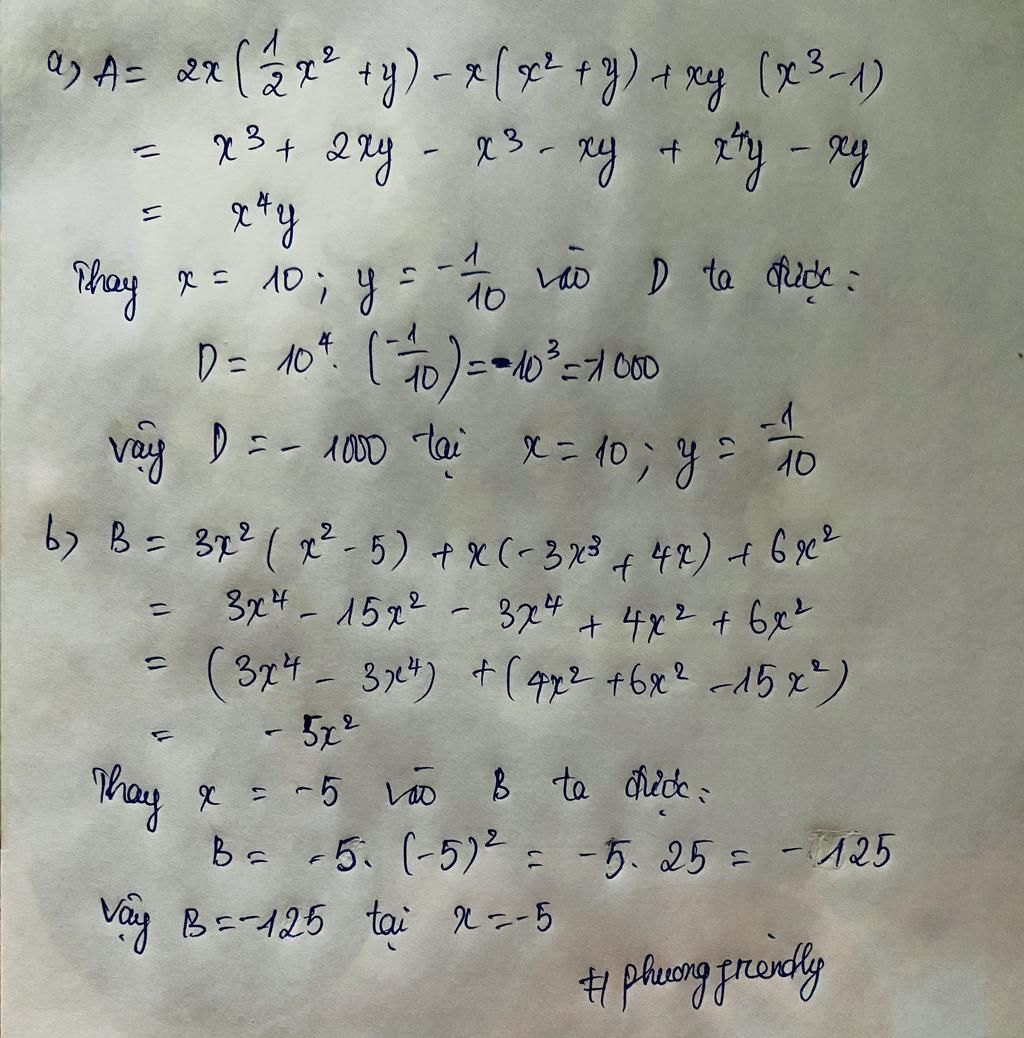 a) A = 2x(1/2 x² + y) - x(x² + y) + xy (x³ - 1)
= x³ + 2xy - x³ - xy + x⁴y - xy
= x⁴y
Thay x = 10; y = -1/10 vào D ta được:
D = 10⁴. (-1/10) = -10³ = -1000
Vậy D = - 1000 tại x = 10; y = -1/10
b) B = 3x² (x² - 5) + x(-3x³ + 4x) + 6x²
= 3x⁴ - 15x² - 3x⁴ + 4x² + 6x²
= (3x⁴ - 3x⁴) + (4x² + 6x² - 15x²)
= - 5x²
Thay x = -5 vào B ta được:
B = -5. (-5)² = -5. 25 = - 125
Vậy B = -125 tại x = -5
# phuong friendly